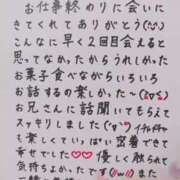 お仕事終わりに会いに
きてくれてありがとう(^^)
こんなに早く2回目会えると
思ってなかったからうれしかった
お菓子食べながらいろいろ
お話するの楽しかった〜(≧▽≦)
お兄さんに話聞いてもらえて
スッキリしました(^o^)イチャイチャ
も楽しくていっぱい密着できて
幸せでした♡♡優しく触られて
気持ちよかったです(//ω//)